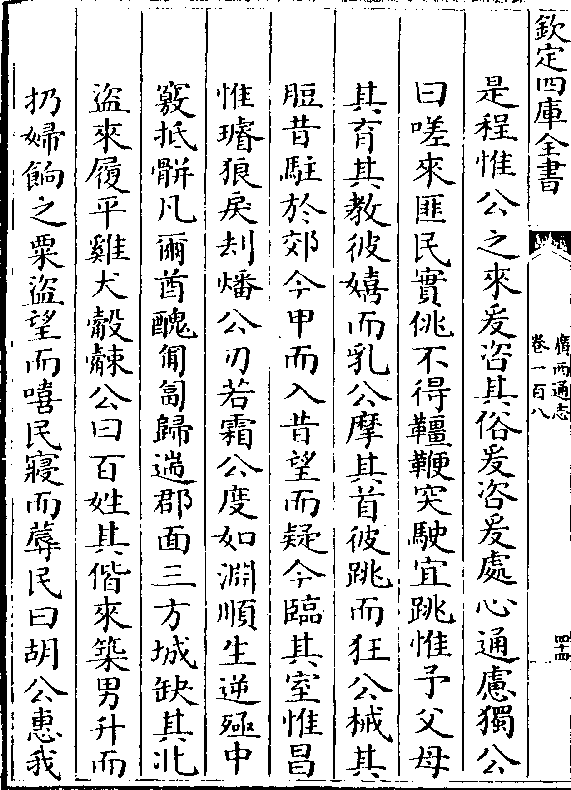 欽定四庫全書
廣西通志
卷一百八
四十四
是程惟公之來爰咨其俗爰咨爰處心通慮獨公
曰嗟來匪民實佻不得韁鞭突駛宜跳惟予父母
其育其教彼嬉而乳公摩其首彼跳而狂公械其
脰昔駐於郊今甲而入昔望而疑今臨其室惟昌
惟璿狼戾刦燔公刃若霜公度如淵順生逆殛中
竅抵骿凡爾酋醜匍匐歸遄郡面三方城缺其北
盜來履平雞犬觳觫公曰百姓其偕來築男升而
扔婦餉之粟盜望而嘻民寢而蓐民曰胡公惠我